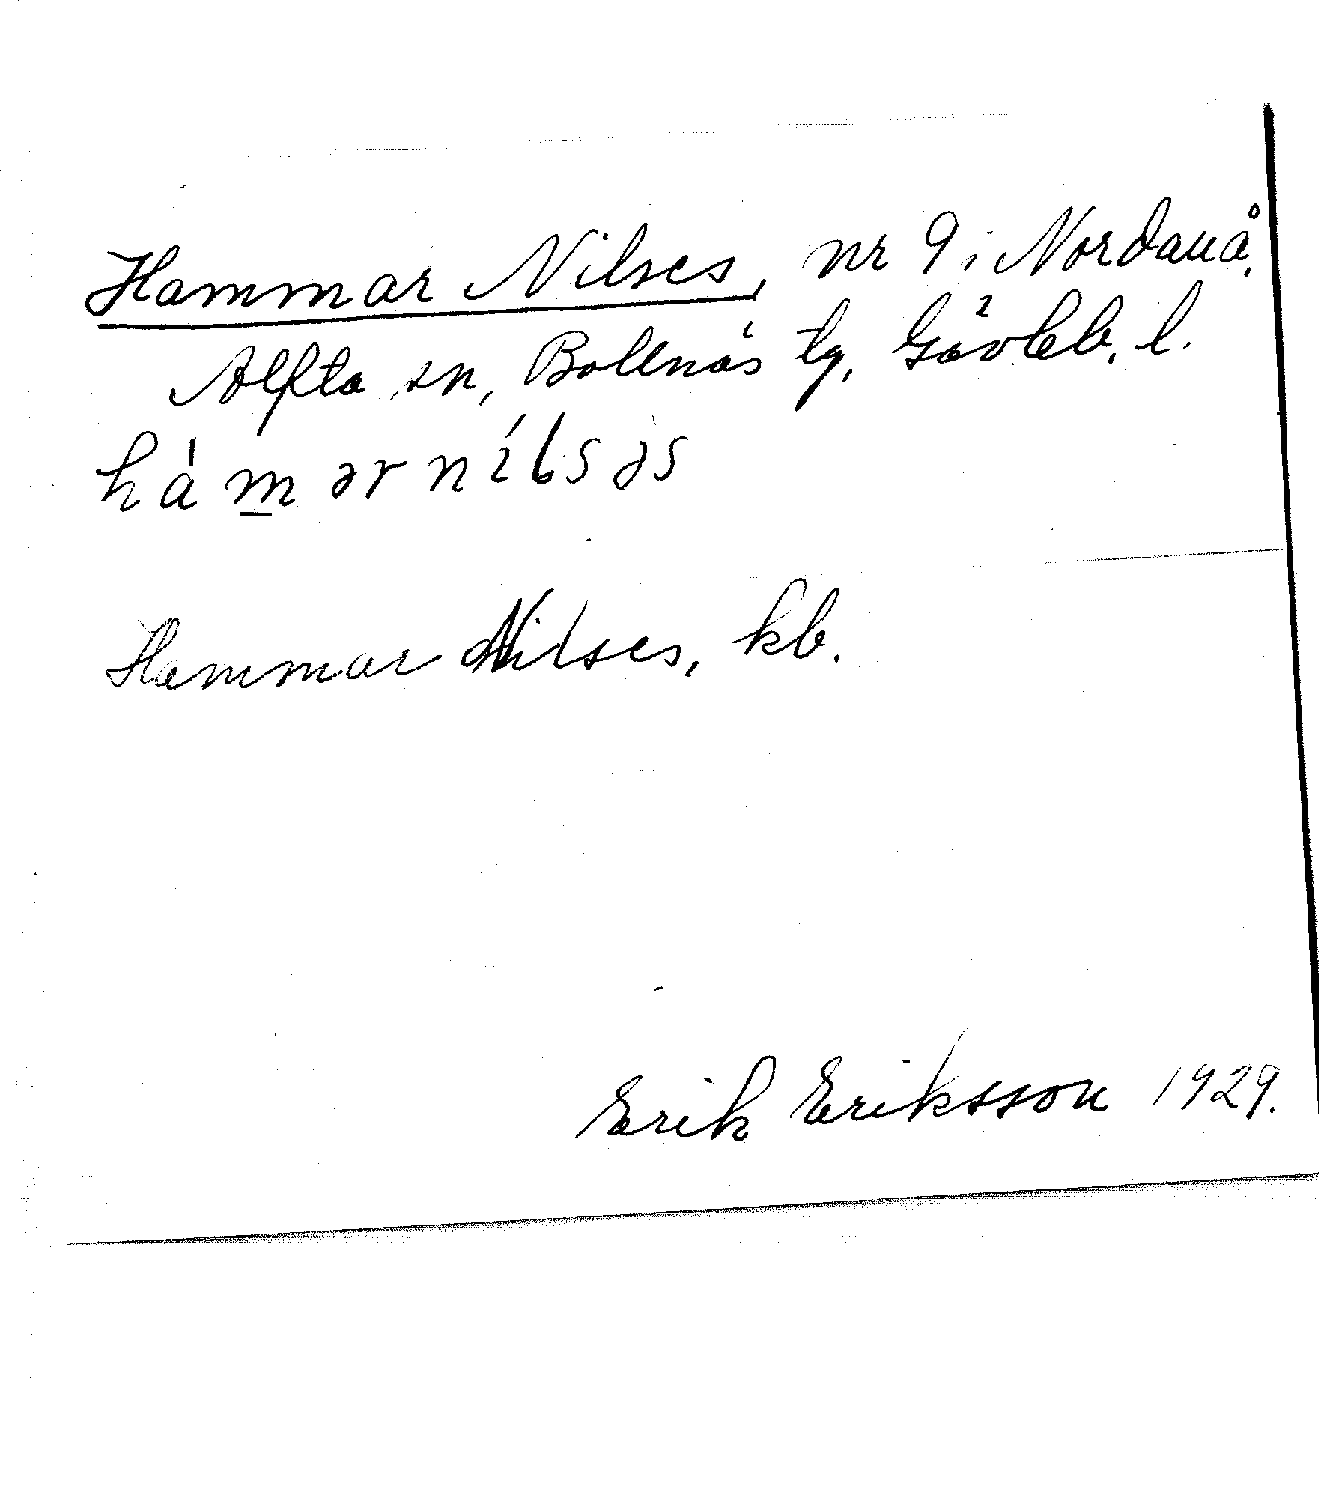 Hammar Nilses, nr 9 i Nordanå,
Alfta sn, Bollnäs tg, Gävleb. l.
hámərnílsəs
Hammar Nilses, kb.
Erik Eriksson 1929.